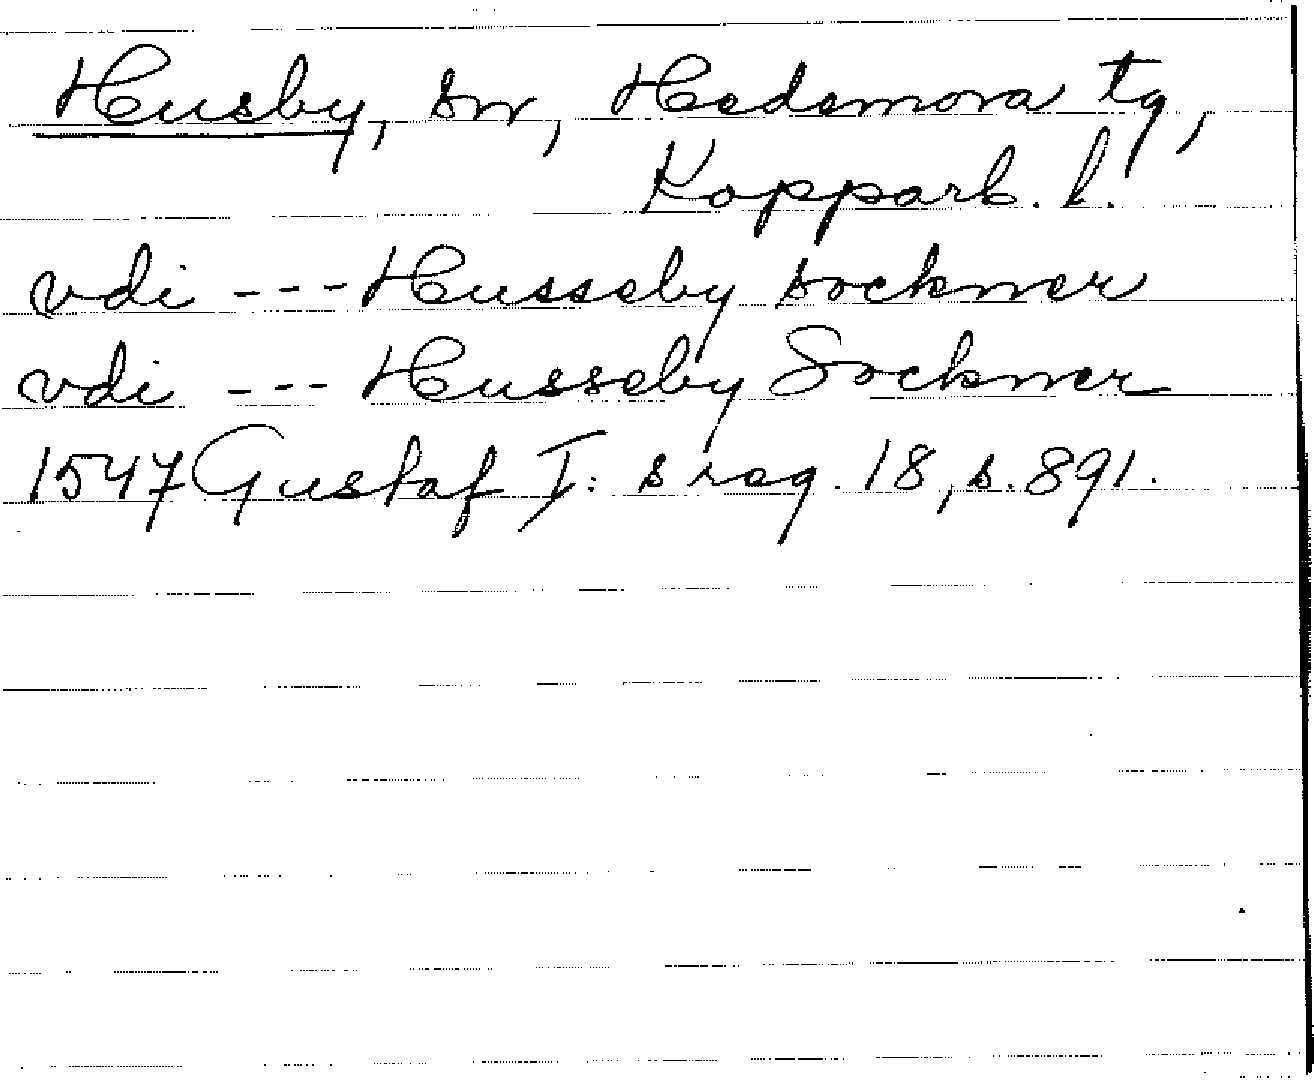 Husby, sn, Hedemora tg,
Kopparb. l.
vdi --- Husseby sockner
vdi --- Husseby Sockner
1547 Gustaf I:s reg. 18, s. 891.